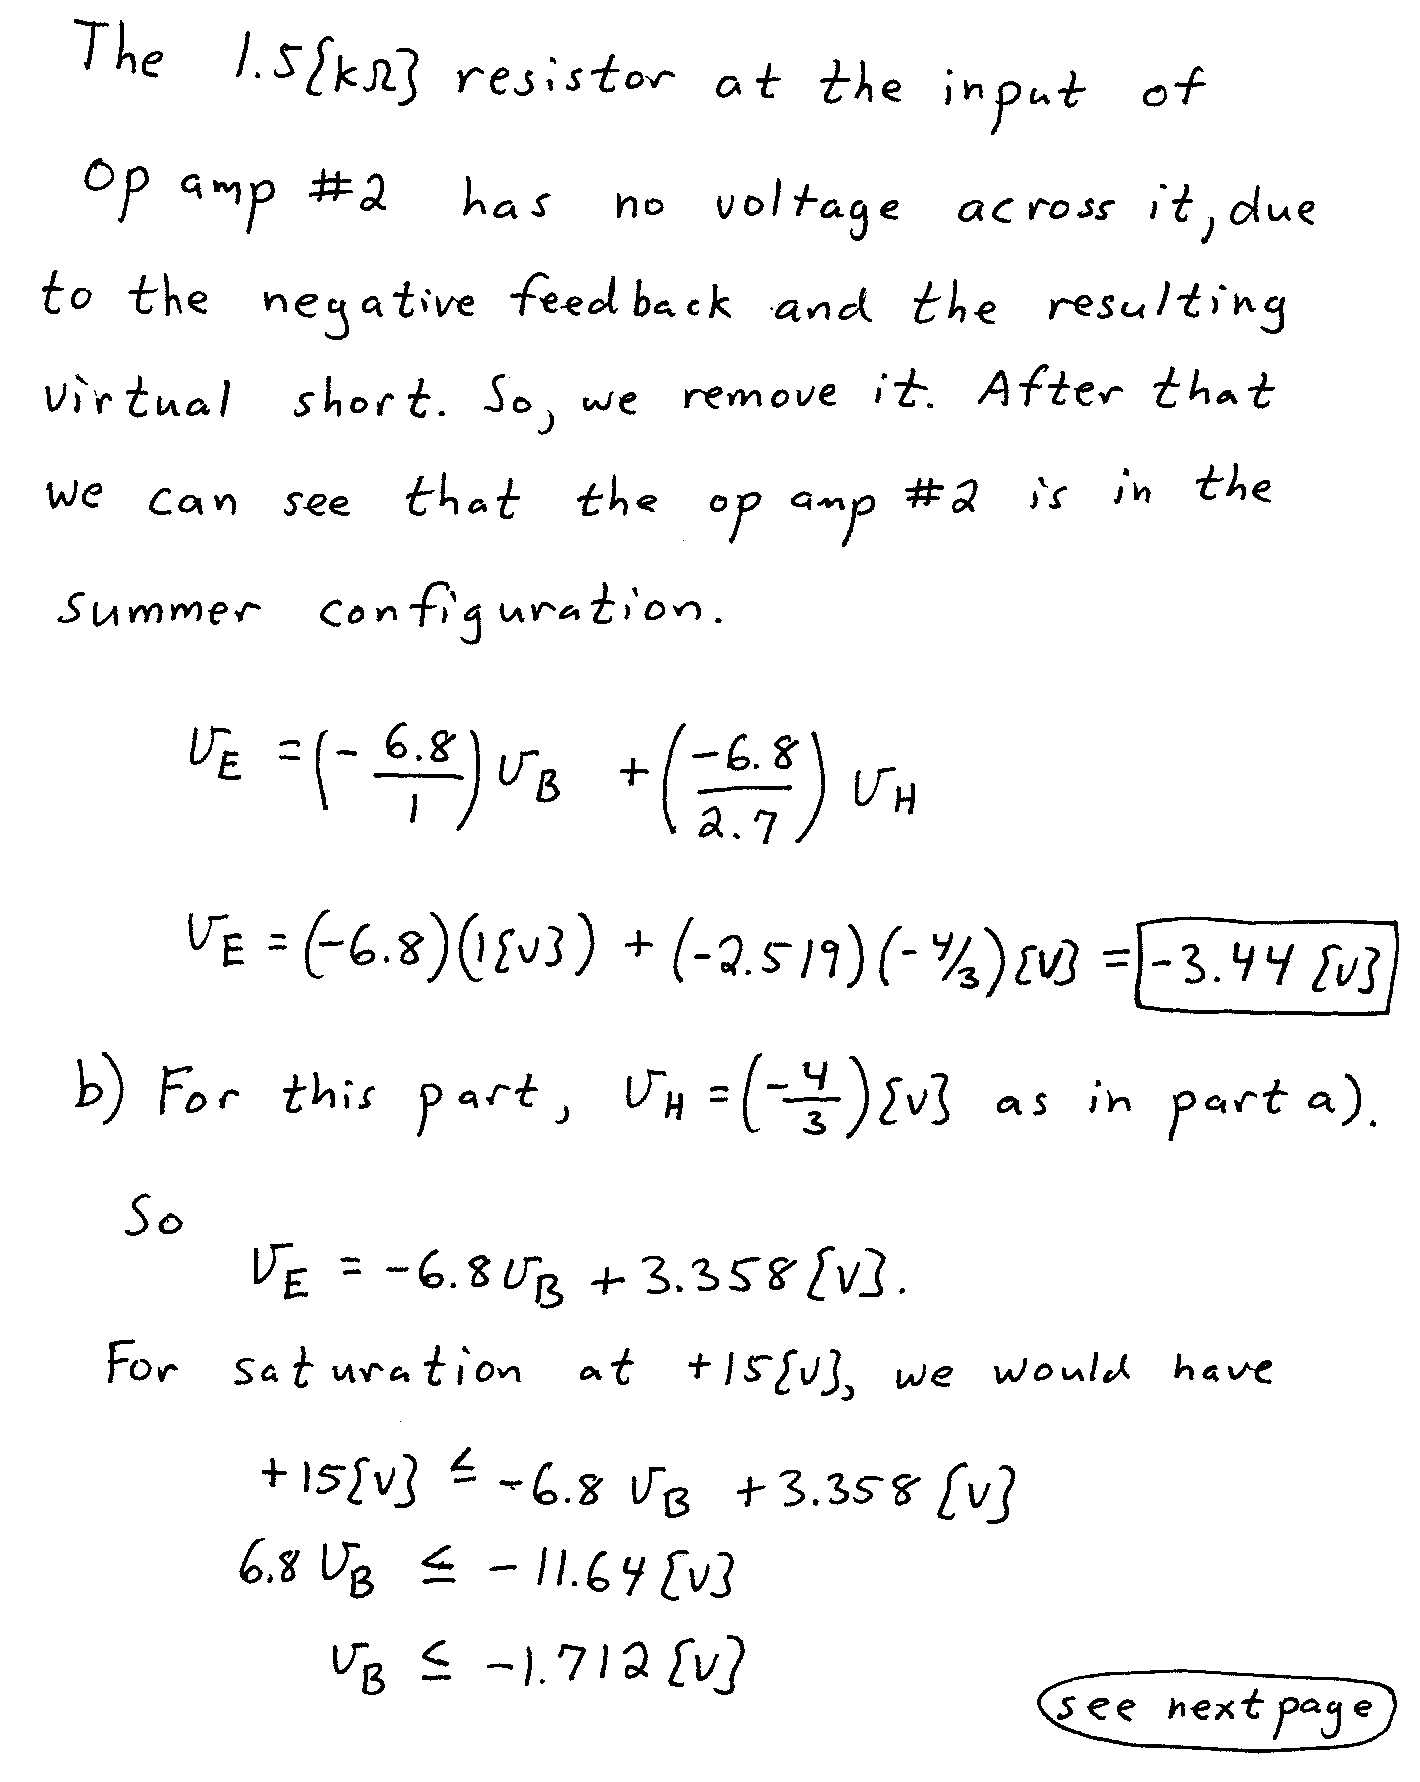 The 1.5{kΩ} resistor at the input of
op amp #2 has no voltage across it, due
to the negative feedback and the resulting
virtual short. So, we remove it. After that
we can see that the op amp #2 is in the
summer configuration.
v_E = (- 6.8/1) v_B + (-6.8/2.7) v_H
v_E = (-6.8)(1{v}) + (-2.519)(-4/3){v} = -3.44 {v}
b) For this part, v_H = (-4/3){v} as in part a).
So
v_E = -6.8 v_B + 3.358 {v}.
For saturation at +15{v}, we would have
+15{v} ≤ -6.8 v_B + 3.358 {v}
6.8 v_B ≤ -11.64 {v}
v_B ≤ -1.712 {v}
see next page